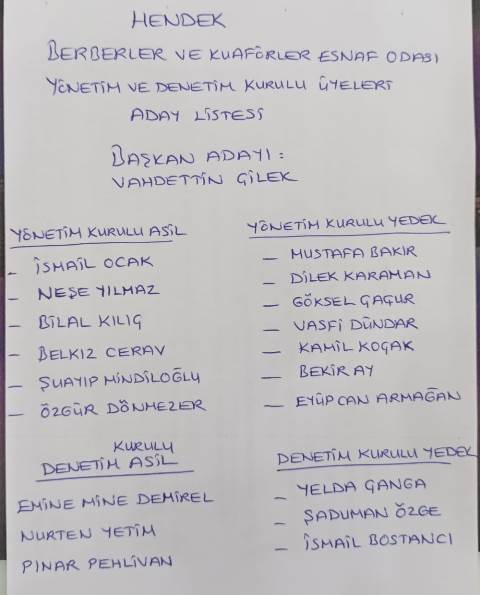 HENDEK
BERBERLER VE KUAFÖRLER ESNAF ODASI
YÖNETİM VE DENETİM KURULU ÜYELERİ
ADAY LİSTESİ
BAŞKAN ADAYI :
VAHDETTİN ÇİLEK
YÖNETİM KURULU ASİL
- İSMAİL OCAK
- NEŞE YILMAZ
- BİLAL KILIÇ
- BELKIZ CERAV
- ŞUAYIP MİNDİLOĞLU
- ÖZGÜR DÖNMEZER
YÖNETİM KURULU YEDEK
- MUSTAFA BAKIR
- DİLEK KARAMAN
- GÖKSEL ÇAÇUR
- VASFİ DÜNDAR
- KAMİL KOÇAK
- BEKİR AY
- EYÜP CAN ARMAĞAN
KURULU
DENETİM ASİL
EMİNE MİNE DEMİREL
NURTEN YETİM
PINAR PEHLİVAN
DENETİM KURULU YEDEK
- YELDA ÇANGA
- ŞADUMAN ÖZGE
- İSMAİL BOSTANCI